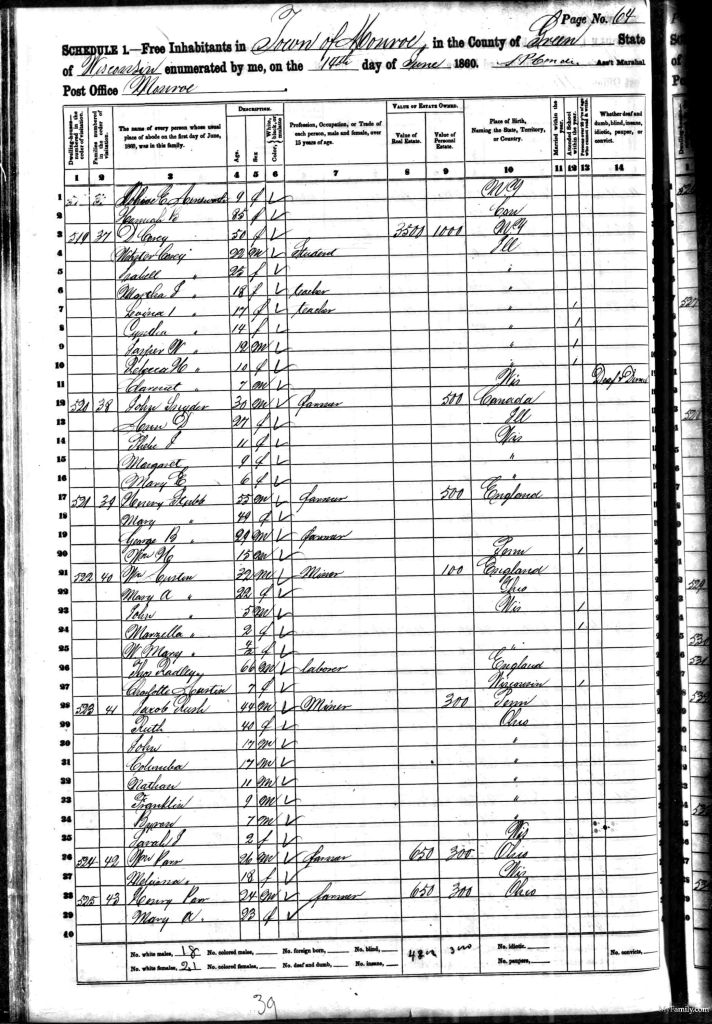 Page No. 64
SCHEDULE 1.—Free Inhabitants in Town of Monroe, in the County of Green State
of Wisconsin enumerated by me, on the 14th day of June 1860. Ass't Marshal
Post Office Monroe
DESCRIPTION. VALUE OF ESTATE OWNED.
Dwelling-houses—numbered in the order of visitation. Families numbered in the order of visitation. The name of every person whose usual place of abode on the first day of June, 1860, was in this family. Age. Sex. Color, White, black, or mulatto. Profession, Occupation, or Trade of each person, male and female, over 15 years of age. Value of Real Estate. Value of Personal Estate. Place of Birth, Naming the State, Territory, or Country. Married within the year. Attended School within the year. Whether deaf and dumb, blind, insane, idiotic, pauper, or convict.
1 2 3 4 5 6 7 8 9 10 11 12 13 14
1 9 f NY
2 Hannah 85 f Con
3 519 37 D Corey 50 f 3500 1000 NY
4 Corey 22 m Student Ill
5 Isabell " 25 f "
6 Martha J " 18 f teacher "
7 Lovina " 17 f teacher " 1
8 Cyntha " 14 f " 1
9 W " 12 m " 1
10 Rebecca " 10 f " 1
11 " 7 m Wis Deaf & Dumb
12 520 38 John Snyder 30 m farmer 500 Canada
13 Ann D 27 f Ill
14 J 11 f Wis
15 Margaret 9 f "
16 Mary E 6 f "
17 521 39 Henry Stubb 55 m farmer 500 England
18 Mary " 49 f
19 George B " 29 m farmer
20 Wm H 15 m Penn 1
21 522 40 Wm Custin 32 m Miner 100 England
22 Mary A " 22 f Ohio
23 John " 5 m Wis 1
24 Marzella " 2 f 1
25 Mary " f "
26 Thos Radley 66 m laborer England
27 Charlotte 7 f Wisconsin 1
28 523 41 Jacob Rush 44 m Miner 300 Penn
29 Ruth 40 f Ohio
30 John 17 m "
31 Columba 17 m "
32 Nathan 11 m "
33 Franklin 9 m "
34 Byron 7 m "
35 Sarah J 2 f Wis
36 524 42 Wm Parr 26 m farmer 650 300 Ohio
37 18 f Wis
38 525 43 Henry Parr 24 m farmer 650 300 Ohio
39 Mary A. 23 f
40
No. white males, 18 No. colored males, No. foreign born, No. blind, No. idiotic, No. convicts,
No. white females, 21 No. colored females, No. deaf and dumb, No. insane, No. paupers,
39
MyFamily.com